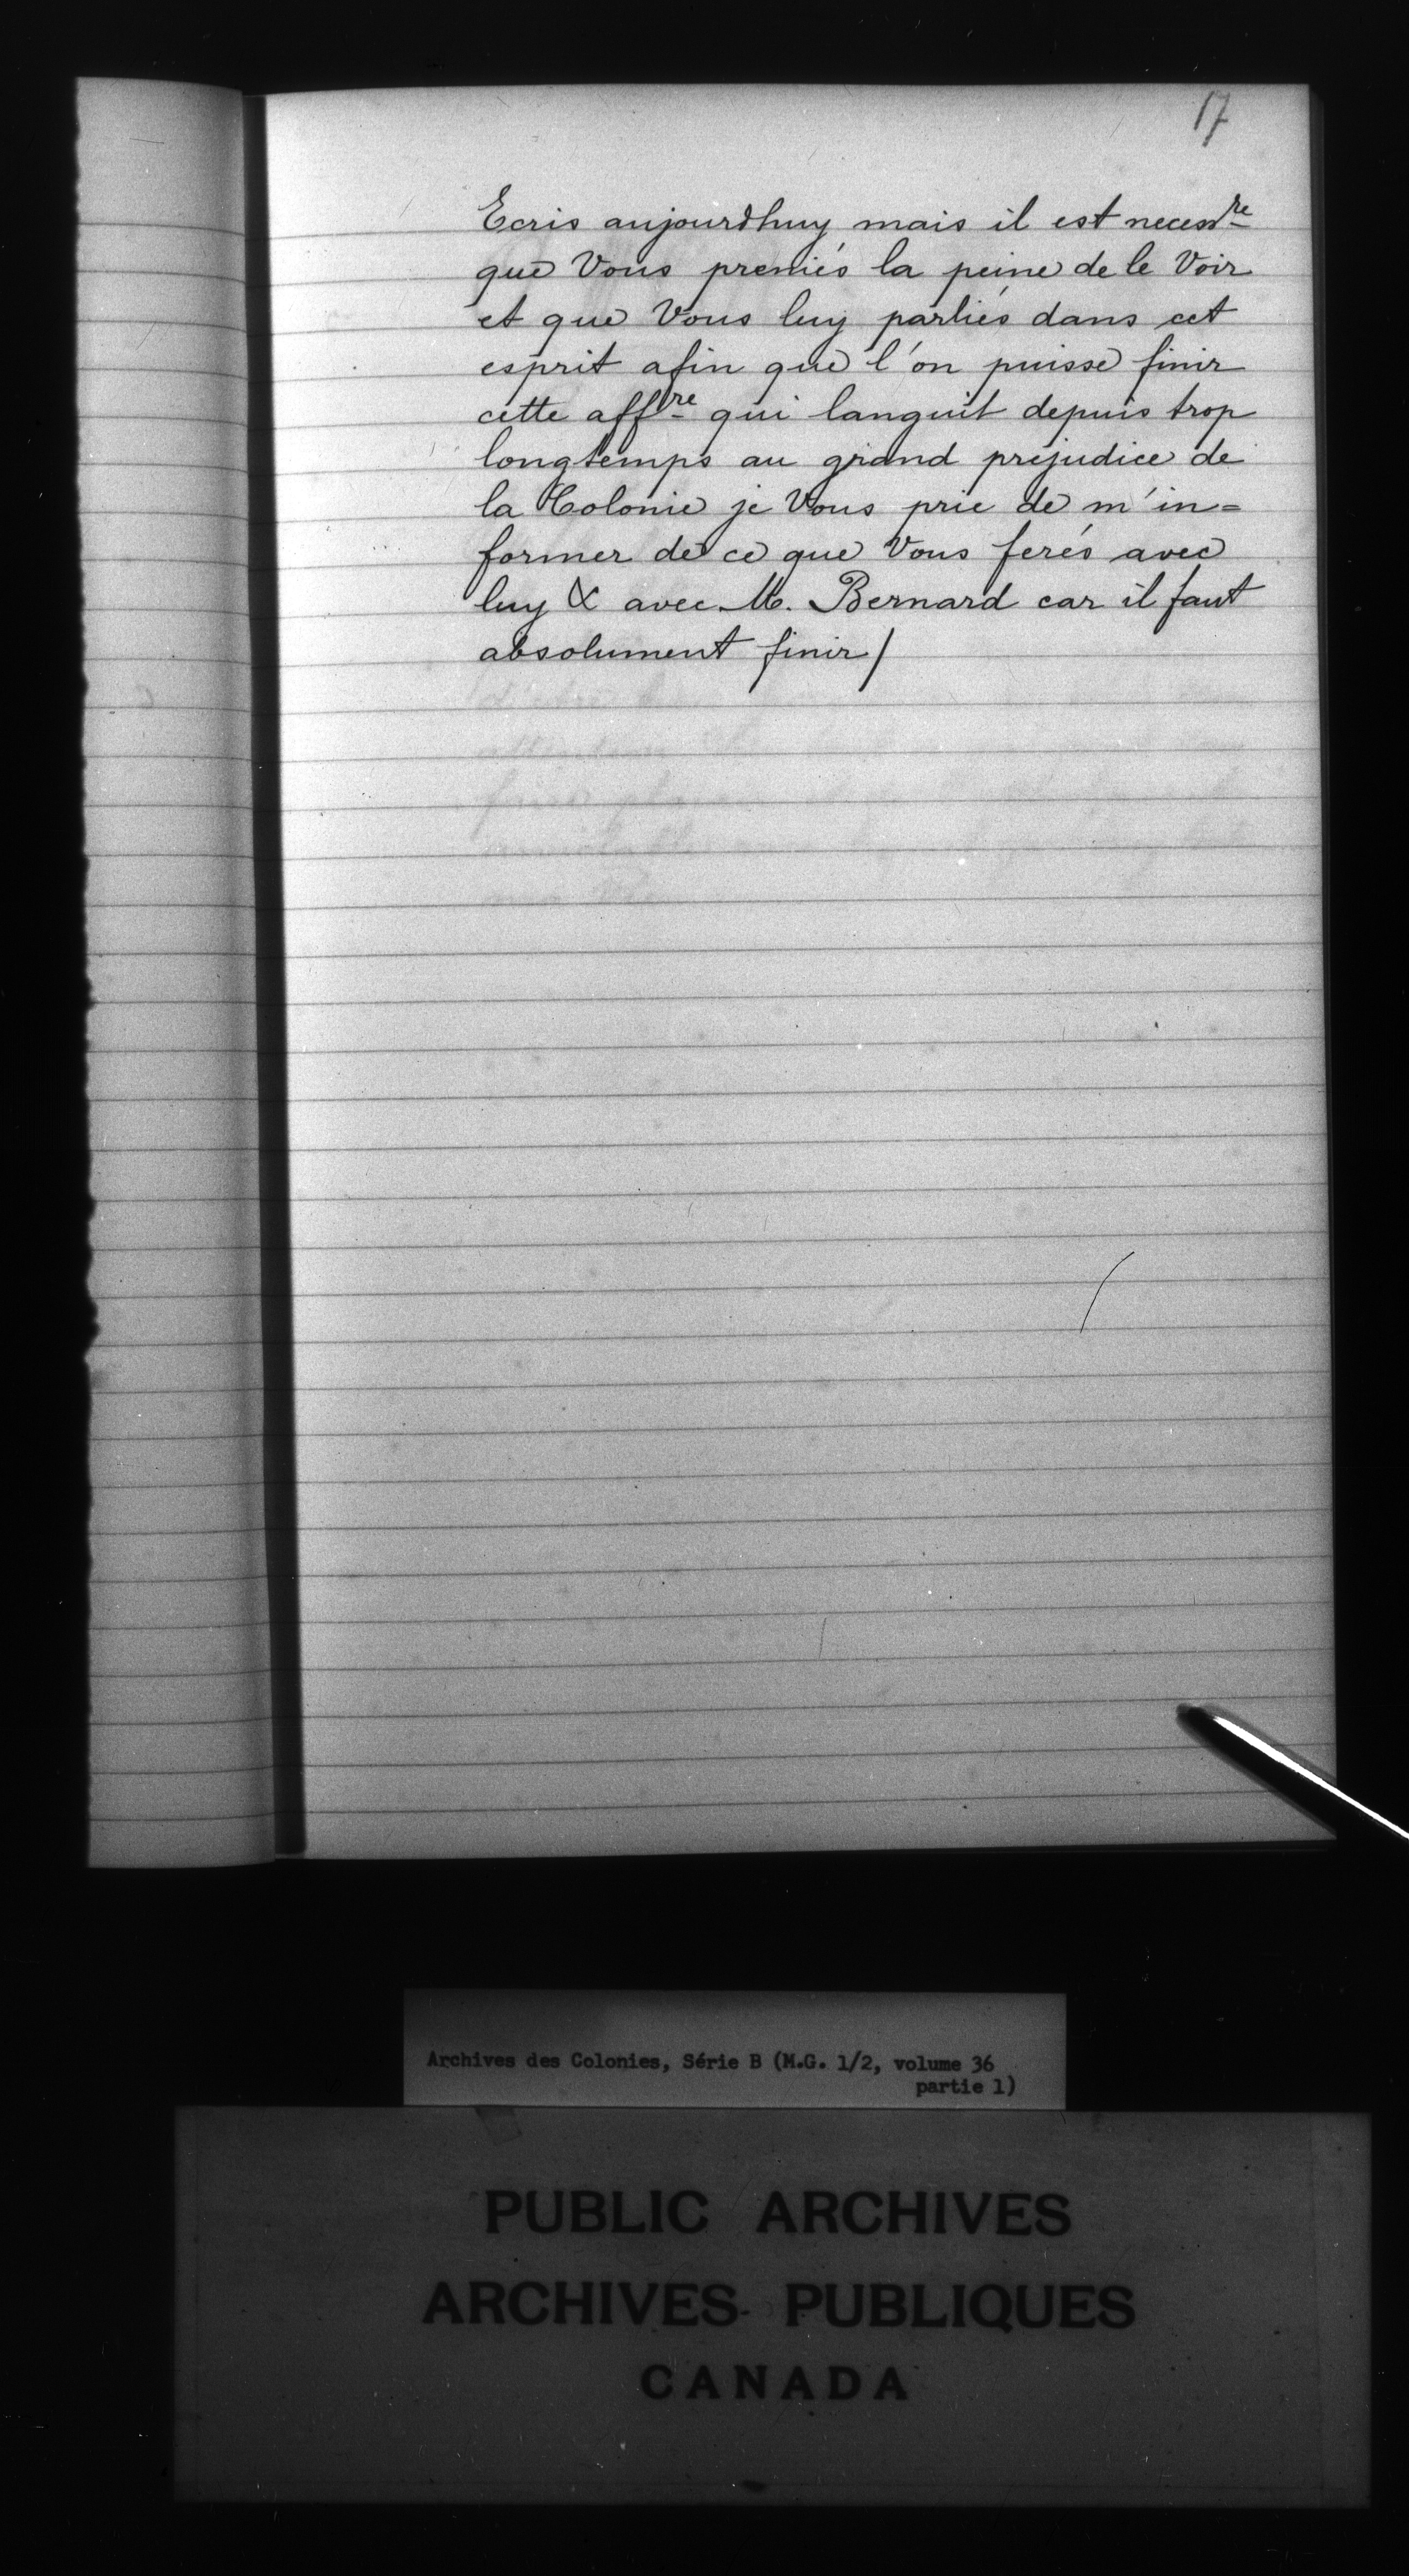 17
Ecris aujourdhuy mais il est necessre
que Vous preniés la peine de le Voir
et que Vous luy parliés dans cet
esprit afin que l'on puisse finir
cette affre qui languit depuis trop
longtemps au grand prejudice de
la Colonie je Vous prie de m'in=
former de ce que Vous ferés avec
luy & avec M. Bernard car il faut
absolument finir/
Archives des Colonies, Série B (M.G. 1/2, volume 36
partie 1)
PUBLIC ARCHIVES
ARCHIVES PUBLIQUES
CANADA